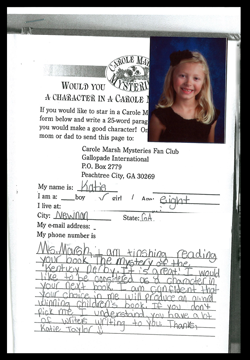 CAROLE MARSH
MYSTERIES
WOULD YOU
A CHARACTER IN A CAROLE M
If you would like to star in a Carole
form below and write a 25-word parag
you would make a good character! Or
mom or dad to send this page to:
Carole Marsh Mysteries Fan Club
Gallopade International
P.O. Box 2779
Peachtree City, GA 30269
My name is: Katie
I am a: boy ✓ girl / Age: eight
I live at:
City: Newnan State: GA
My e-mail address:
My phone number is
Ms. Marsh, I am finishing reading
your book The mystery at the
Kentucky Derby. It is great! I would
like to be considered as a character in
your next book. I am confident that
your choice in me will produce an award
winning children's book. If you don't
pick me, I understand you have a lot
of writers writing to you. Thanks,
Katie Taylor